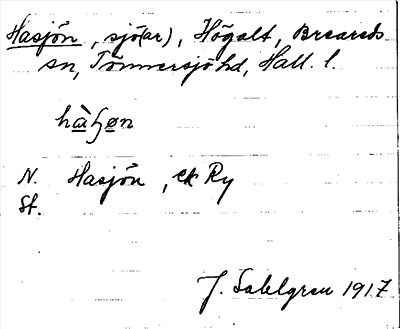 Hasjön, sjö(ar), Högalt, Breareds
sn, Tönnersjö hd, Hall. l.
hàʃøn
N. Hasjön, ek Ry
St.
J. Sahlgren 1917